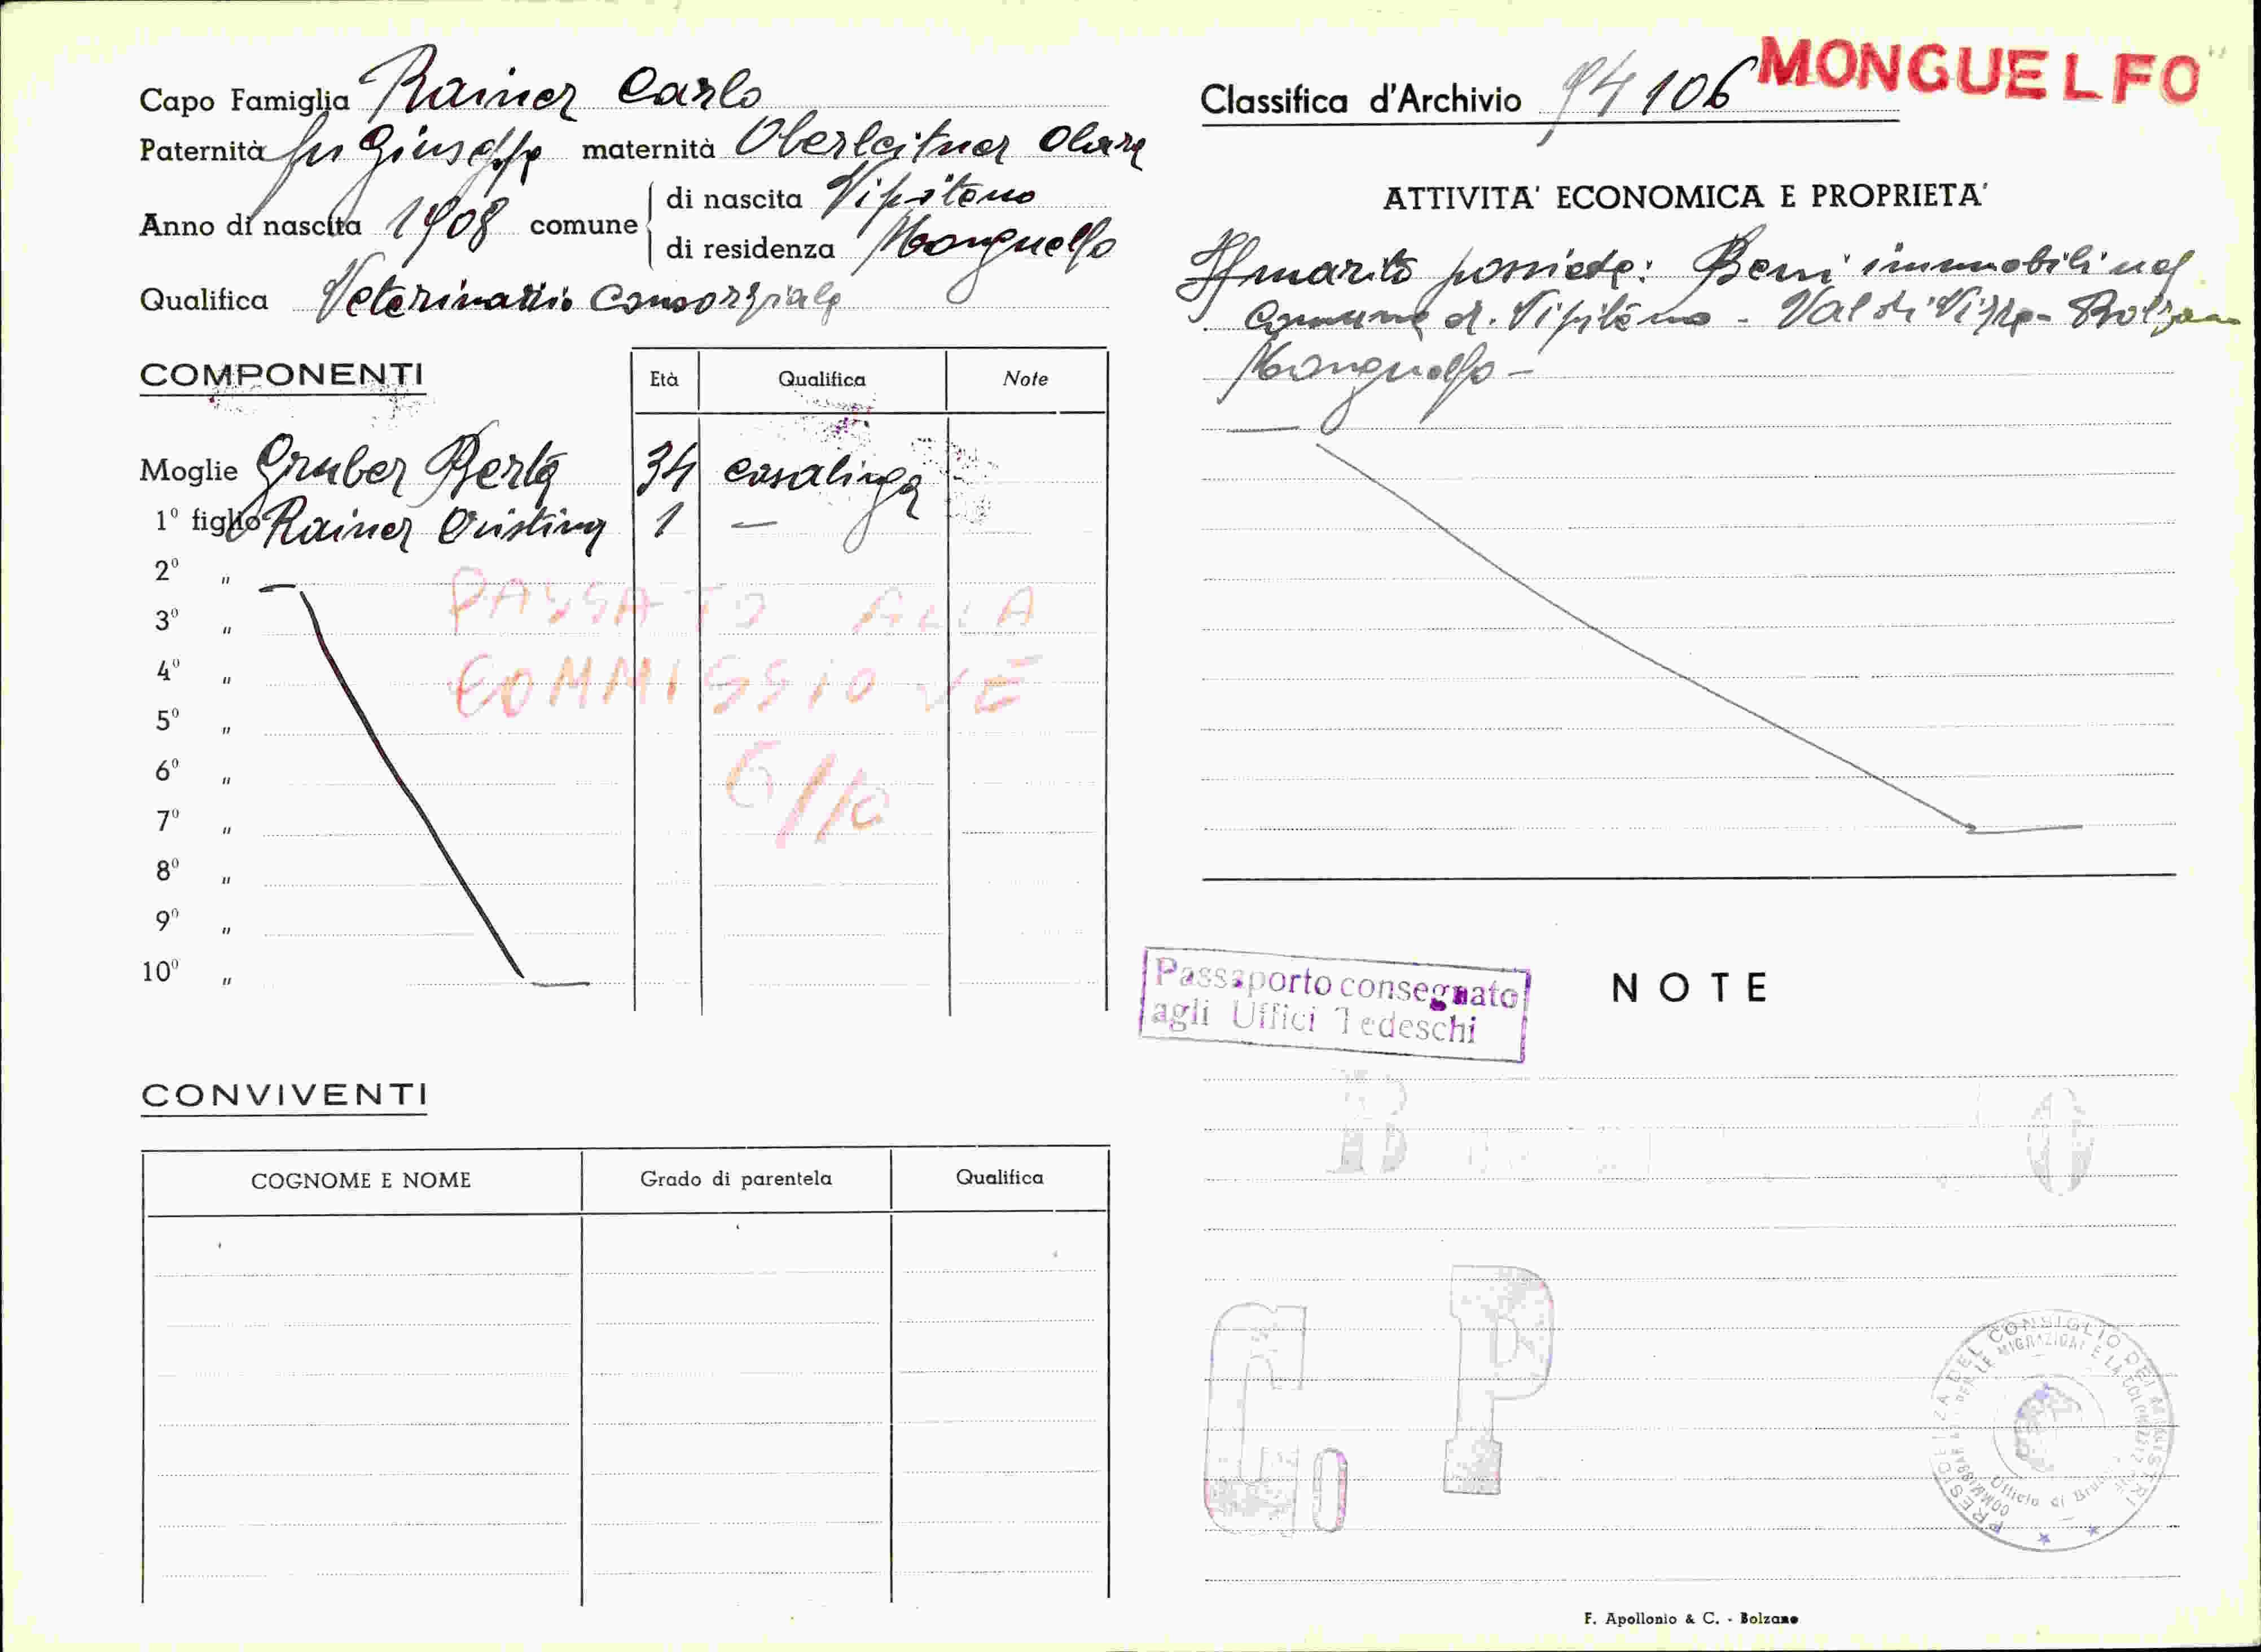 Capo Famiglia Rainer Carlo
Paternità fu Giuseppe maternità Oberleitner Clara
Anno di nascita 1908 comune di nascita Vipiteno
di residenza Monguelfo
Qualifica Veterinario Consorziale
COMPONENTI Età Qualifica Note
Moglie Gruber Berta 34 casalinga
1° figlio Rainer Cristina 1 —
2° "
3° "
4° "
5° "
6° "
7° "
8° "
9° "
10° "
PASSATO ALLA
COMMISSIONE
6/10
CONVIVENTI
COGNOME E NOME Grado di parentela Qualifica
Classifica d'Archivio 94106 MONGUELFO
ATTIVITA' ECONOMICA E PROPRIETA'
Il marito possiede: Beni immobili nel
Comune di Vipiteno - Val di Vizze - Bolzano
Monguelfo -
Passaporto consegnato
agli Uffici Tedeschi
NOTE
B O
G P
PRESIDENZA DEL CONSIGLIO DEI MINISTRI
PER LE MIGRAZIONI E LA COLONIZZAZIONE
Ufficio di
F. Apollonio & C. - Bolzano